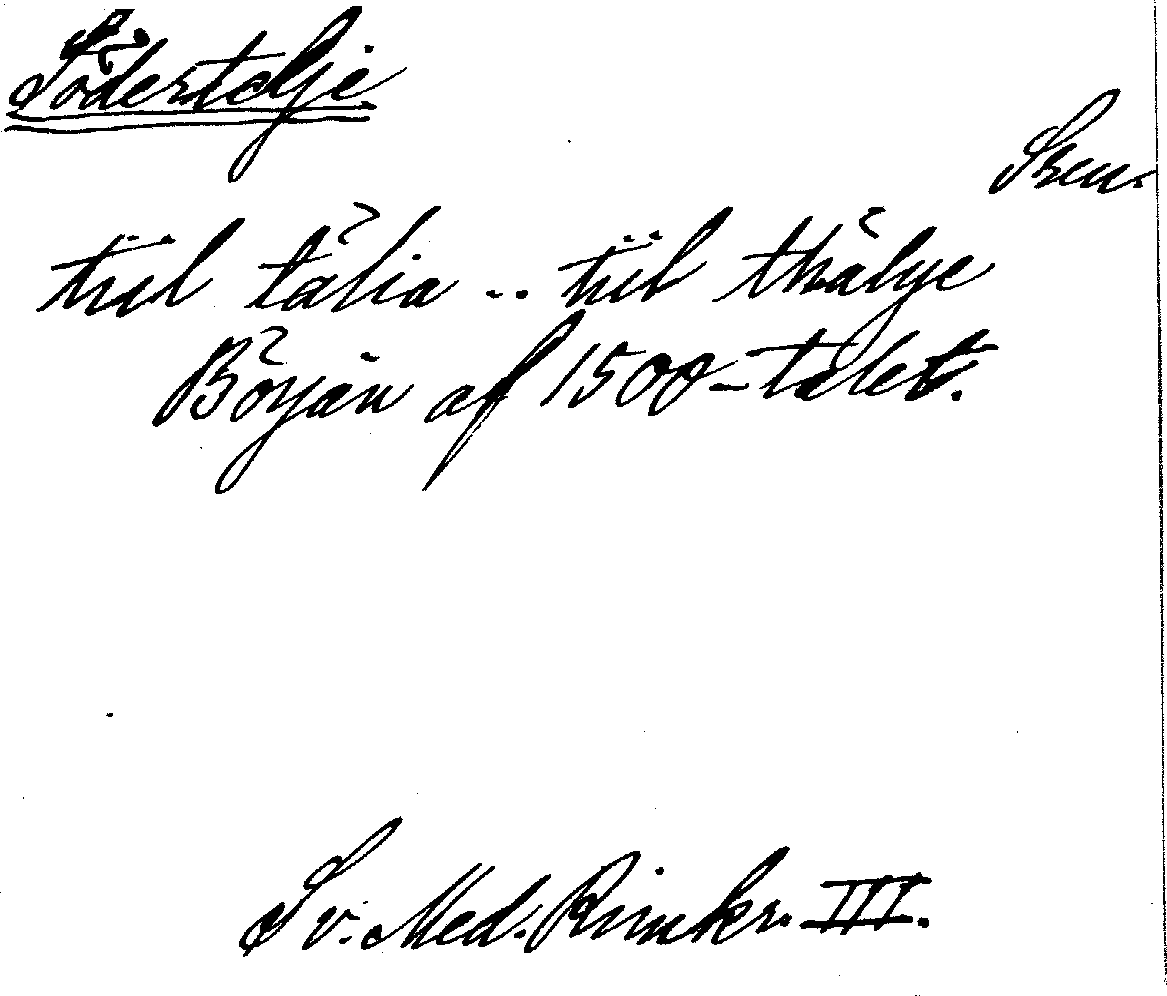 Södertelje
Sven.
tiil tälia .. tiil thälye
Början af 1500-talet.
Sv. Med. Rimkr. III.